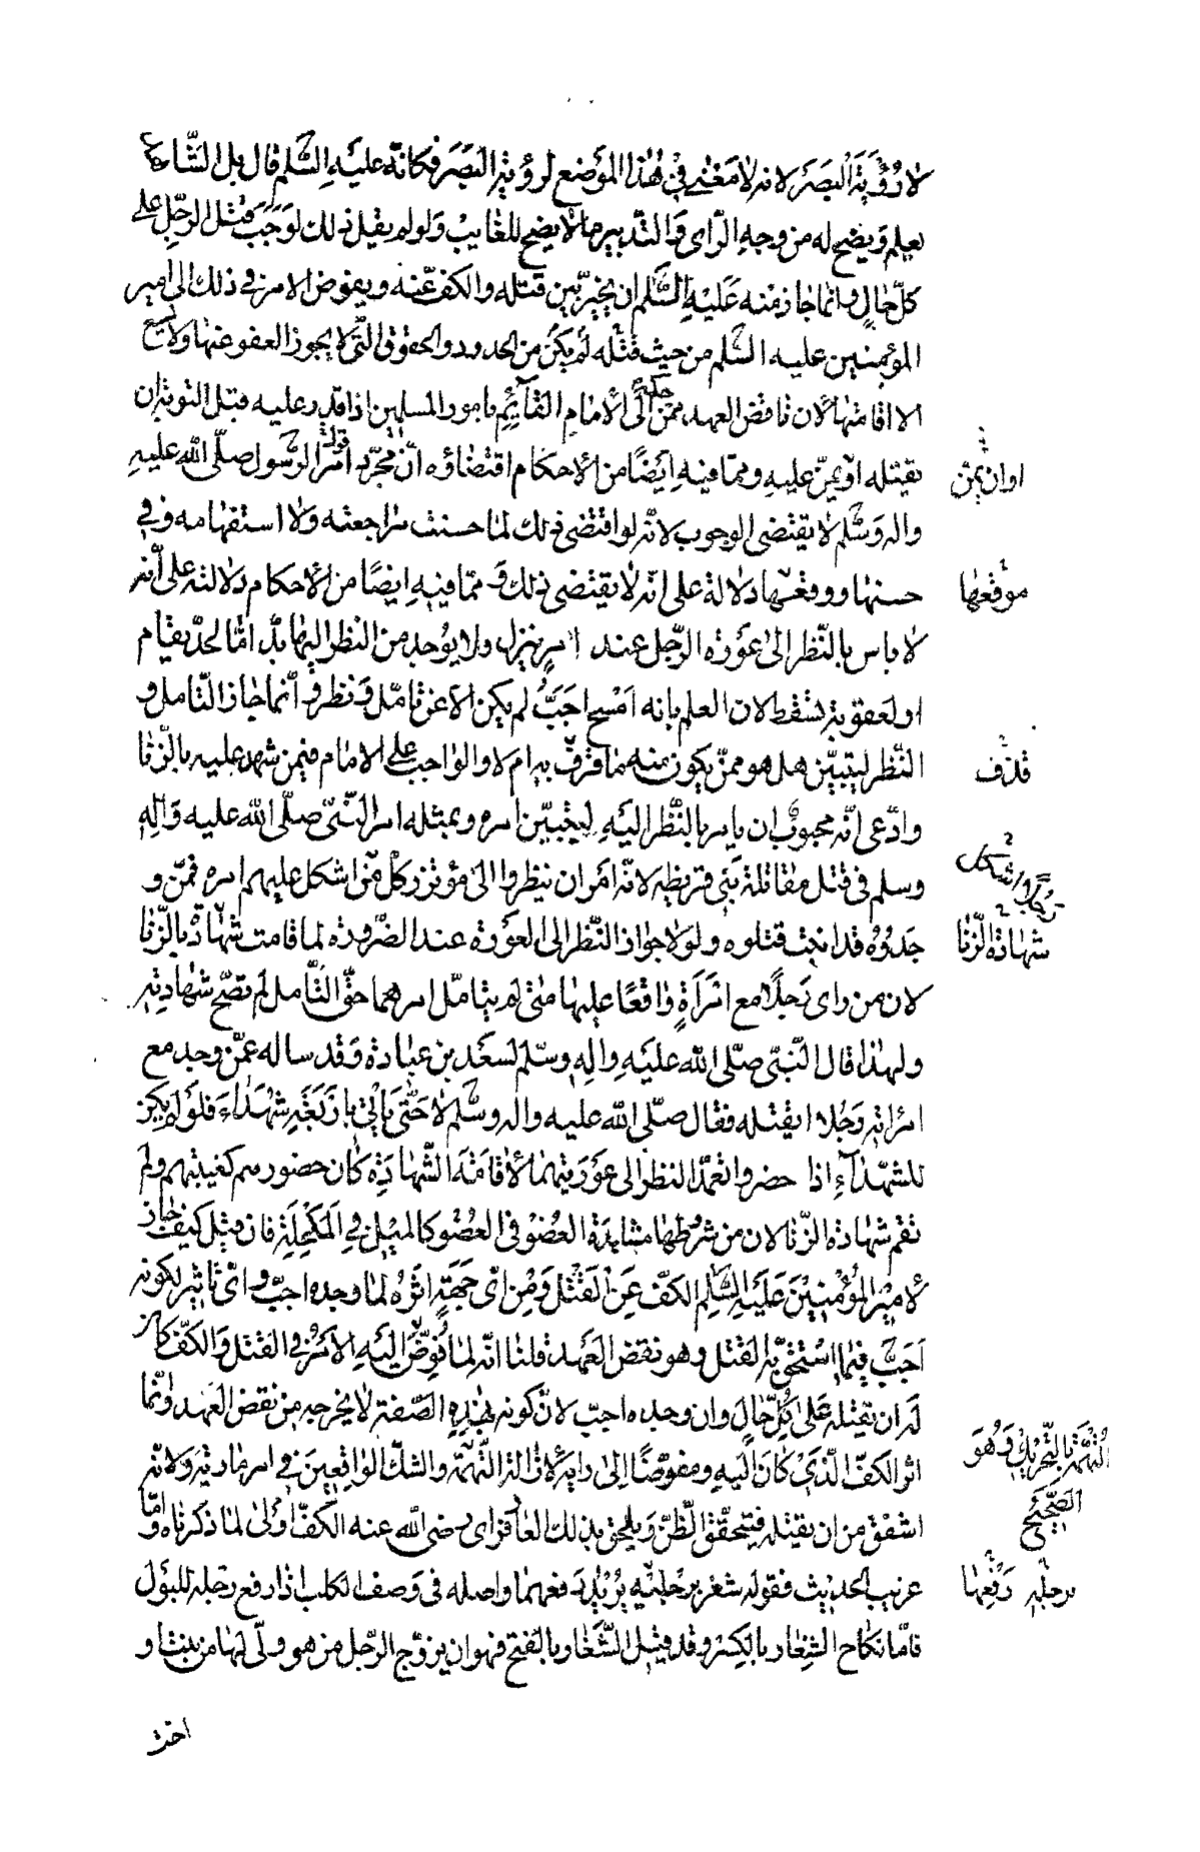 لا رُؤْيَةَ الْبَصَرِ لانه لا مَعْنٰى فِىْ هٰذا الموْضع لرؤيةِ الْبَصَرِ فكانّه عليَهِ السَّلم قال بل الشّاهد
يعلم وَيضح له من وجهِ الرّاى وَالتّدبيرِ ما لا يضح للغايب وَلو لم يقل ذلك لوَجَبَ قتل الرجّل على
كلّ حالٍ وانما جاز منه عَلَيْهِ السَّلم ان يخيّر بَين قتله والكف عَنه ويفوض الامر فى ذلك الى امير
المؤمنين عليه السَّلم من حيث قتْله لم يكن من الحدود والحقوق الّتى لا يجوز العفو عنها ولا يسع
الا اقامتها لان ناقض العهد ممّن حكمه الى الامامِ القآئِمِ بامور المسلمين اذا قدر عليه قبل التوبة ان
يقتله اوْ يمنّ عليهِ وممّا فيهِ ايَضًا من الاحكام اقتضاؤه انّ مجّرد قوله امْر الرّسول صلّى الله عليهِ
اوان يمن
واله وَسَّلم لا يقتضى الوجوب لانّه لو اقتضى ذلك لما حسنت مراجعته وَلا استفهامه وفى
حسنها ووقعها دلالة على انّه لا يقتضى ذلك وَ ممّا فيهِ ايضًا من الاحكام دلالته على انّه
موقعها
لا باس بالنّظر الى عوْرة الرّجل عند امرٍ ينزل ولا يوُجد من النظر اليها بدّ امّا لحدّ يقام
او لعقوبة تسقط لان العلم بانه امْسح اجَبّ لم يكن الا عن تامّل وَنظر وَ انّما جاز التّامل و
النّظر ليتبيّن هل هو ممنّ يكون منه ما قرف به ام لا والواجب على الامام فيمن شهد عليه بالزّنا
قذف
وادّعى انّه مجبوب ان يامر بالنّظر اليَهِ ليتبيّن امره وبمثله امر النّبىّ صلّى الله عليه وَالِهِ
وسلم فى قتل مقاتلة بَنى قريظه لانّه امَر ان ينظروا الى مؤتزر كلّ مّن اشكل عليهم امره فمّن و
رجلا اشكل
جَدُوُه قد انبت قتلوه ولولا جواز النّظر الى العوْرة عند الضّرورة لما قامت شهادة بالزّنا
شهادة الزّنا
لان من راى رَجلًا مع امْرَاَةٍ وٰاقعًا عليها متى لم يتامّل امرهما حقّ التّامل لم تصّح شهادته
ولهذا قال النّبىّ صلّى الله عليَهِ والِهِ وسلّم لسعَد بن عبادة وَقد ساله عمّن وجد مع
امراته رَجُلا ايقتله فقال صلّى الله عليه واله وسَّلم لا حَتّٰى يَاْتِىَ باَرْبَعَةِ شُهَدَاءَ فلوْ لم يكن
للشهدآءِ اذا حضروا تعمّد النظر الى عوْرَتيهما لاقامَة الشّهادَةِ كان حضورهم كغيبتهم ولم
تقم شهادة الزّنا لان من شرطها مشاهدة العضْو فى العضْو كالميْل فى المكحِلَةِ فان قيل كيفَ جاز
لامِيْر المؤْمنِيْنَ عَلَيَهِ السَّلم الكفّ عَن القَتْل وَمن اىّ جَهَةٍ اثَرُه لما وجده اجبّ واىّ تاثير لكونه
اَجَبَّ فيما اسْتحَقّ به القتل وهو نقض العَهد قلنا انّه لما فُوّض اليَهِ الاَمْرُ فى القتل وَالكفّ كان
له ان يقتله عَلى كُلّ حَالَ وان وجده اجبّ لانّ كونه بهذِهِ الصّفة لا يخرجه من نقض العَهد وَانّما
التهمَة بالتّحريك وَهُوَ
اثر الكفّ الّذىْ كانَ اليهِ ومفوضًا الِى رايه لازالة التّهمَة والشكّ الوٰاقعِينَ فى امر مارية وَلانّه
الصّحيْح
اشفق من ان يقتله فيتحقّق الظّنّ وَيلحق بذلك العار فراى رضى الله عنه الكفّ اوْلى لما ذكرناه وَامّا
غريب الحديث فقوله شغر برجليْه يُريد رَفعهما واصله فى وَصف الكلب اذا رفع رجله للبوَل
برجله رَفعها
فامّا نكاح الشِغار بالكِسْر وقد قيل الشَّغار بالفتح فهو ان يزوّج الرّجل من هو ولىّ لها من بنت او
اخت